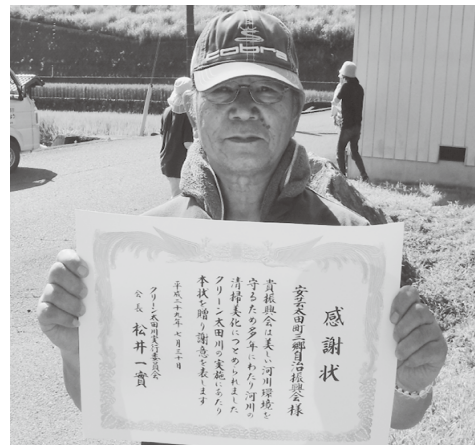 cobra
感謝状
安芸太田町三郷自治振興会様
貴振興会は美しい河川環境を
守るため多年にわたり河川の
清掃美化につとめられました
クリーン太田川の実施にあたり
本状を贈り謝意を表します
平成二十九年七月三十日
クリーン太田川実行委員会
会長 松井一實